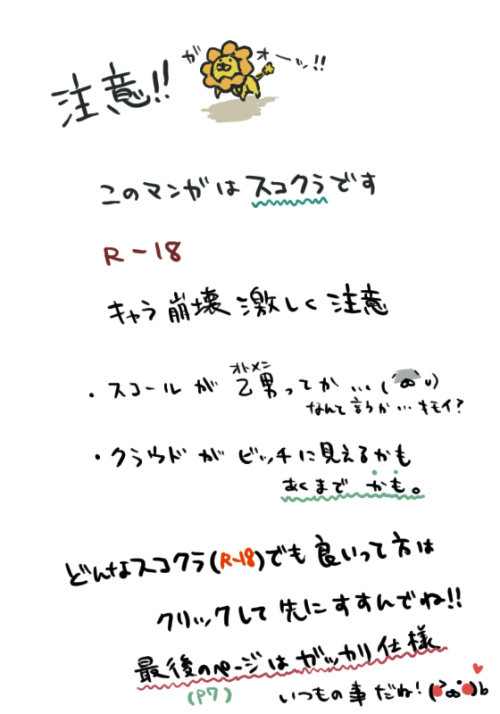 ガオーッ!!
注意!!
このマンガはスコクラです
R-18
キャラ崩壊激しく注意
・スコールが乙男ってか…( ˘ω˘ )
オトメン
なんて言うか…キモイ?
・クラウドがビッチに見えるかも
あくまでかも。
どんなスコクラ(R-18)でも良いって方は
クリックして先にすすんでね!!
最後のページはガッカリ仕様
(P7)
いつもの事だね!(*°ω°*)b